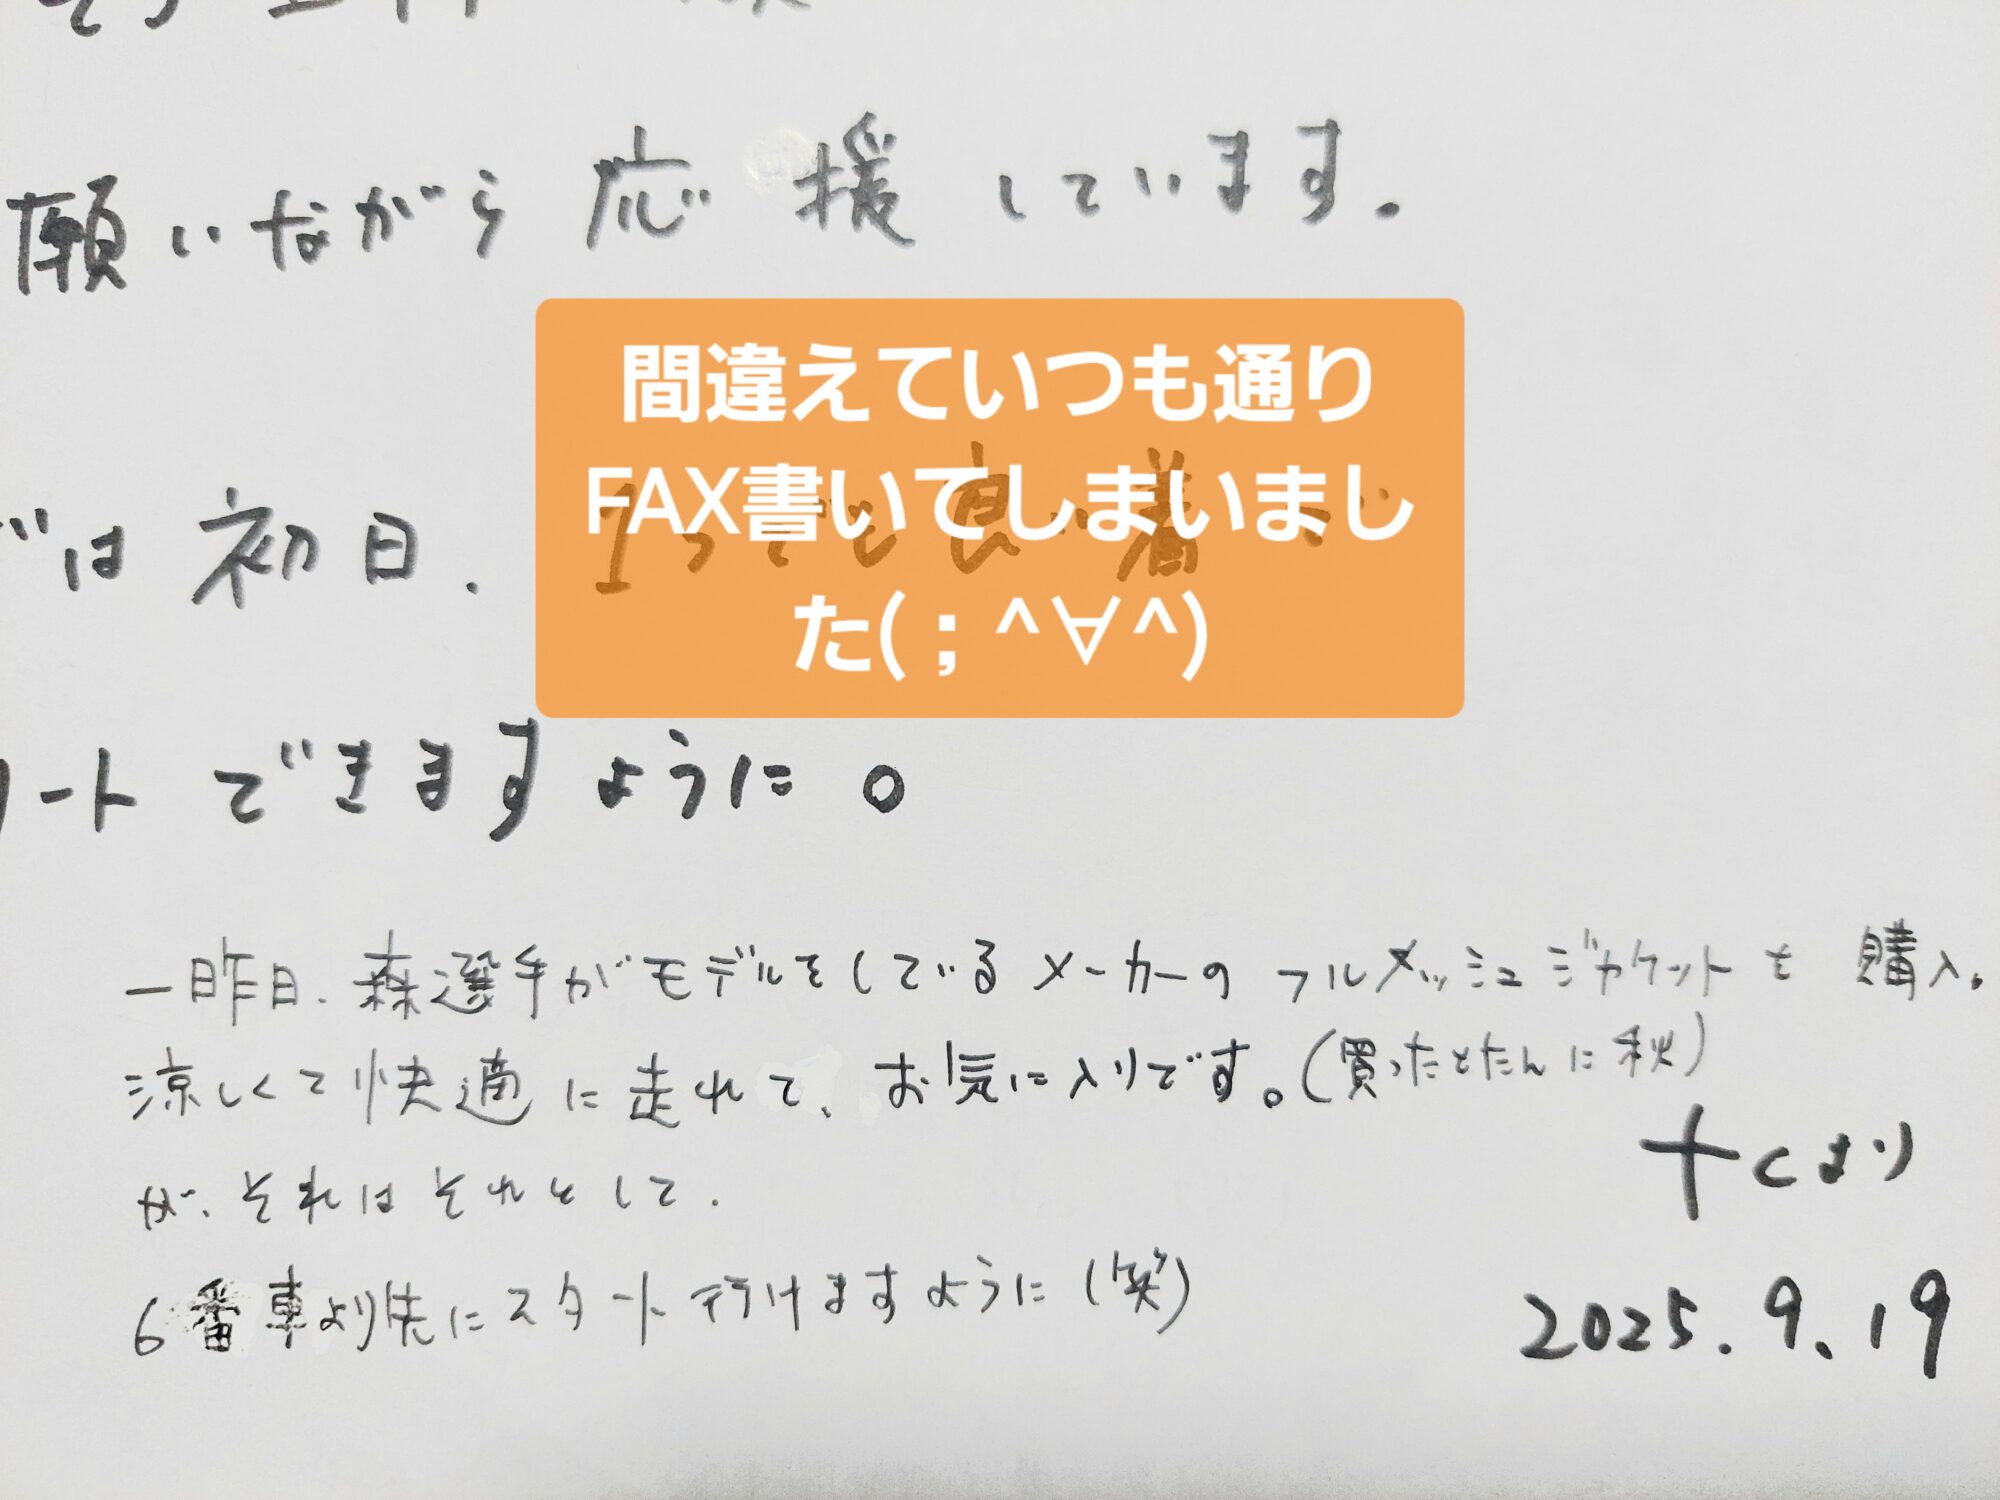 願いながら応援しています。
間違えていつも通り
FAX書いてしまいまし
た(；^∀^)
では初日、1つでも良い着で
ートできますように。
一昨日、森選手がモデルをしているメーカーのフルメッシュジャケットを購入。
涼しくて快適に走れて、お気に入りです。(買ったとたんに秋)
が、それはそれとして、
6番車より先にスタート行けますように(笑)
十くより
2025.9.19